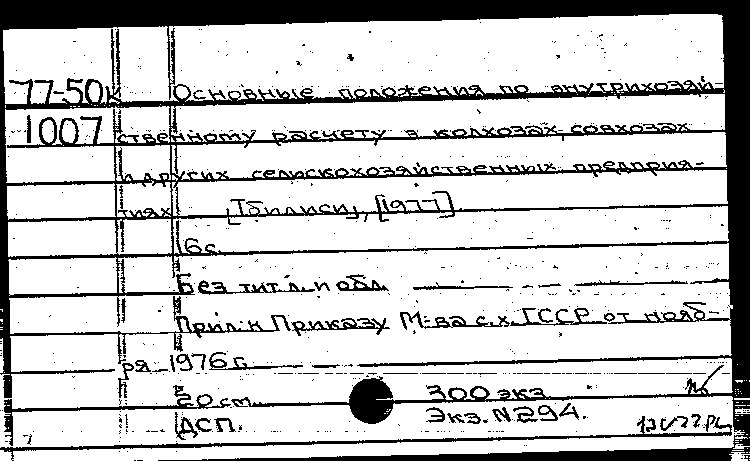 77-50к Основные положения по внутрихозяй-
1007 ственному расчету в колхозах, совхозах
и других сельскохозяйственных предприя-
тиях [Тбилиси], [1977]
16 с.
Без тит. л. и обл.
Прил. к Приказу М-ва с.х. ГССР от нояб-
ря 1976 г.
20 см. 300 экз.
ДСП. Экз. N 294.